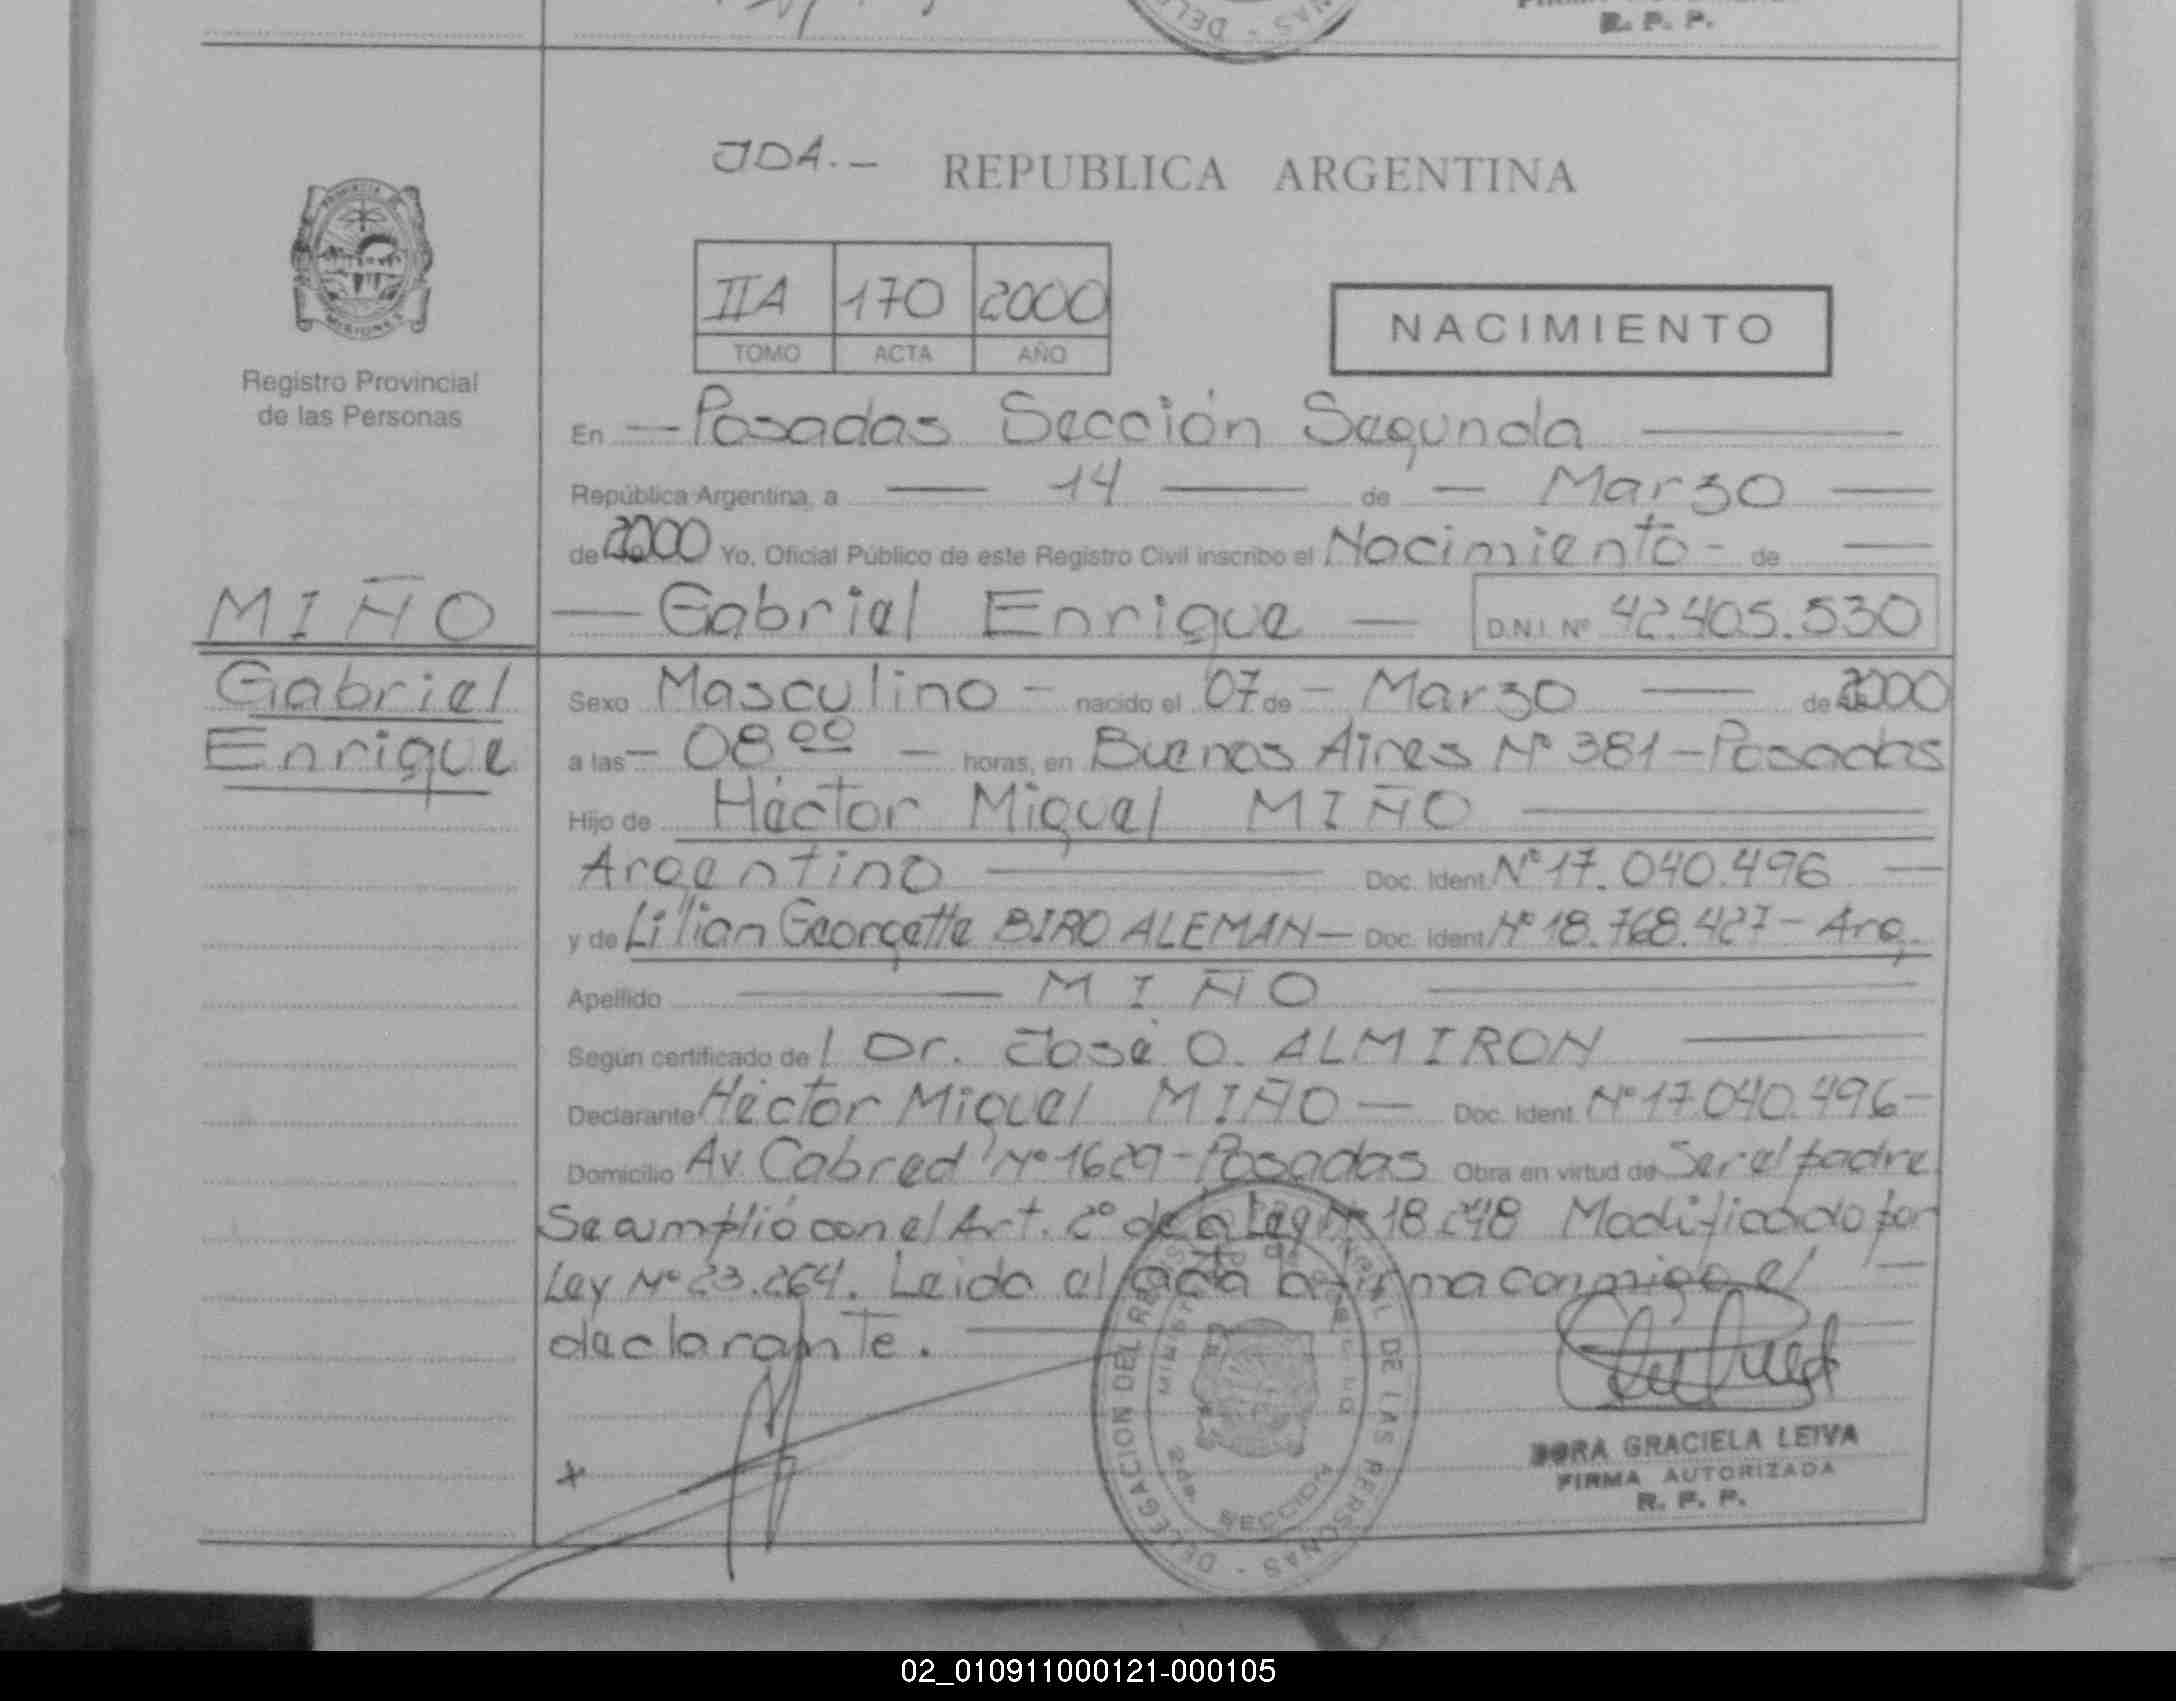 R. P. P.
JDA.-
REPUBLICA ARGENTINA
IIA 170 2000
TOMO ACTA AÑO
NACIMIENTO
PROVINCIA DE
MISIONES
Registro Provincial
de las Personas
En — Posadas Sección Segunda —
República Argentina, a — 14 — de — Marzo —
de 2000 Yo, Oficial Público de este Registro Civil inscribo el Nacimiento - de —
MIÑO
— Gabriel Enrique — D.N.I. Nº 42.405.530
Gabriel
Enrique
Sexo Masculino - nacido el 07 de - Marzo — de 2000
a las - 08 00 - horas, en Buenos Aires Nº 381 - Posadas
Hijo de Héctor Miguel MIÑO —
Argentino — Doc. Ident. Nº 17.040.496 —
y de Lilian Georgette BIRO ALEMAN — Doc. Ident. Nº 18.768.427 - Arg.
Apellido — MIÑO —
Según certificado del Dr. José O. ALMIRON —
Declarante Héctor Miguel MIÑO — Doc. Ident. Nº 17.040.496 -
Domicilio Av. Cabred Nº 1629 - Posadas Obra en virtud de Ser el padre
Se cumplió con el Art. 2º de la Ley Nº 18.248 Modificado por
Ley Nº 23.264. Leida el acta la firma conmigo el —
declarante. —
DELEGACION DEL REGISTRO PROVINCIAL DE LAS PERSONAS -
2da. SECCION
DORA GRACIELA LEIVA
FIRMA AUTORIZADA
R. P. P.
02_010911000121-000105